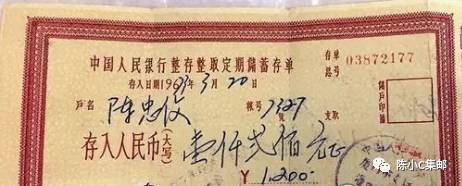 中国人民银行整存整取定期储蓄存单
存单
号码 03872177
存入日期19 年3月20日
户名 陈忠 帐号 7327 凭 支取
存入人民币(大写)壹仟贰佰元正
¥1,200-
中国人
陈小C集邮